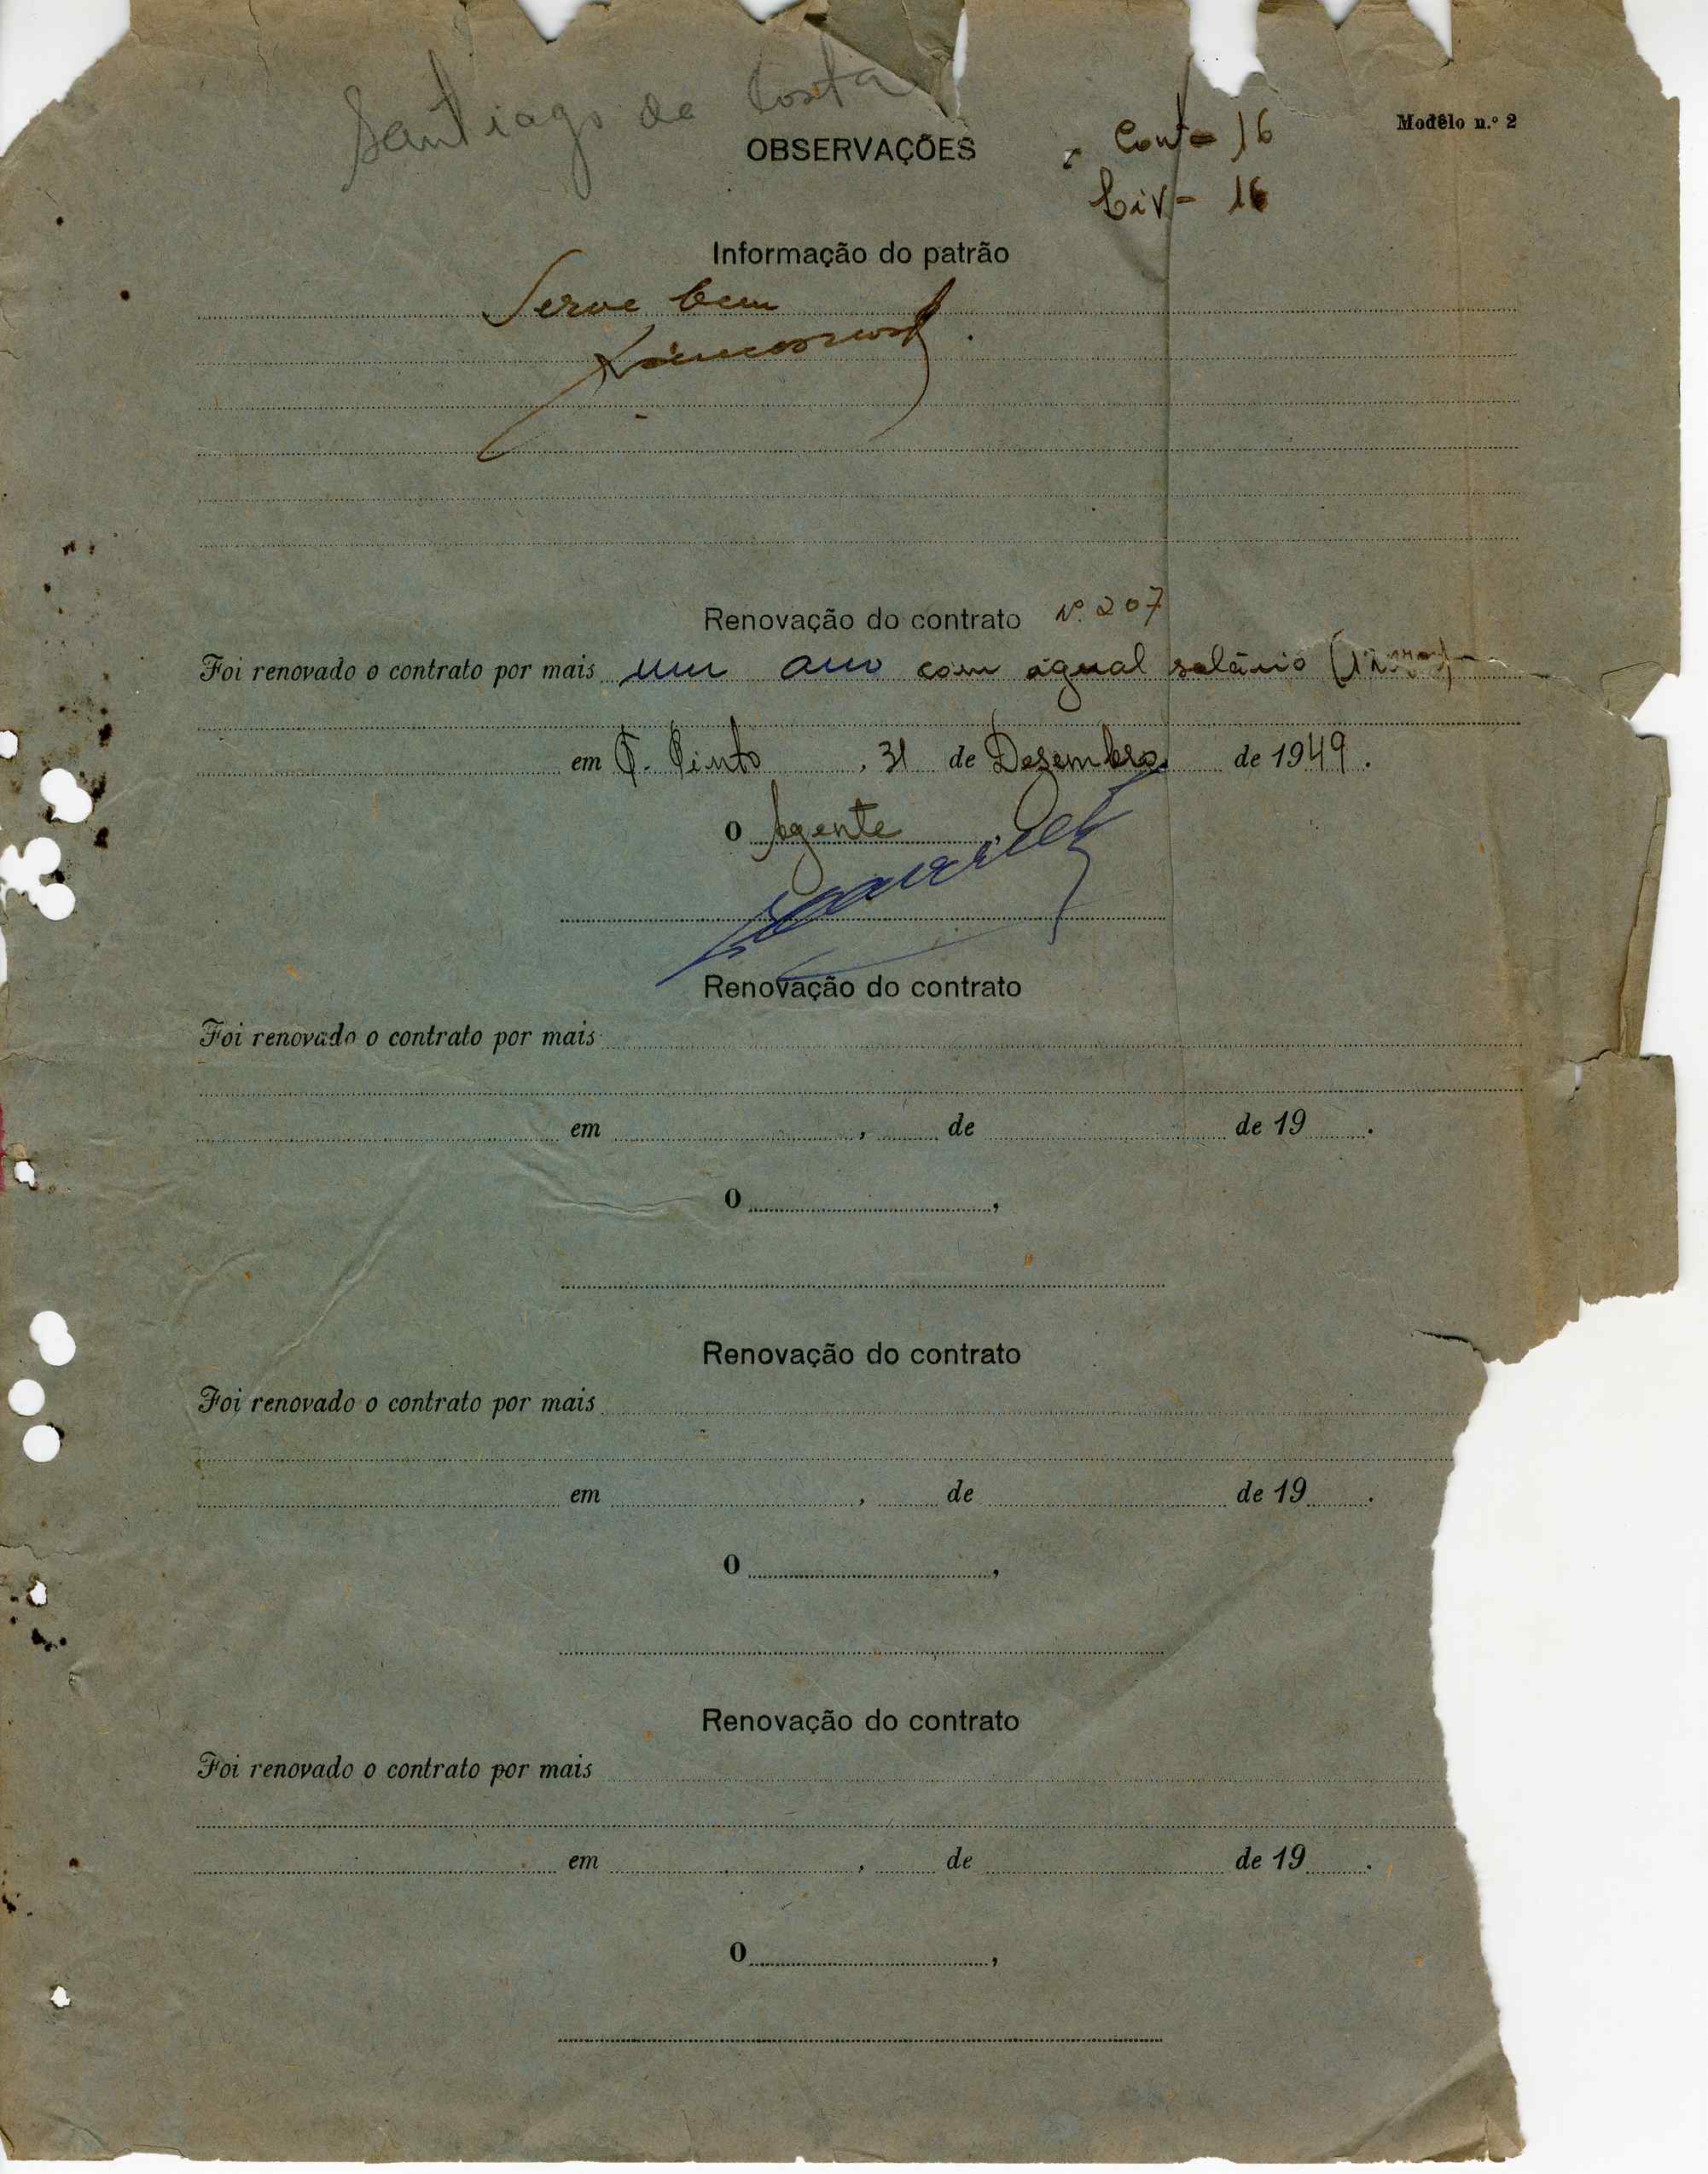 Santiago da Costa
Modêlo n.º 2
OBSERVAÇÕES
Cont - 16
Liv - 16
Informação do patrão
Serve bem
Renovação do contrato Nº 207
Foi renovado o contrato por mais um ano com igual salário
em P. Pinto, 31 de Dezembro de 1949.
O Agente,
Renovação do contrato
Foi renovado o contrato por mais
em , de de 19 .
O ,
Renovação do contrato
Foi renovado o contrato por mais
em , de de 19 .
O ,
Renovação do contrato
Foi renovado o contrato por mais
em , de de 19 .
O ,